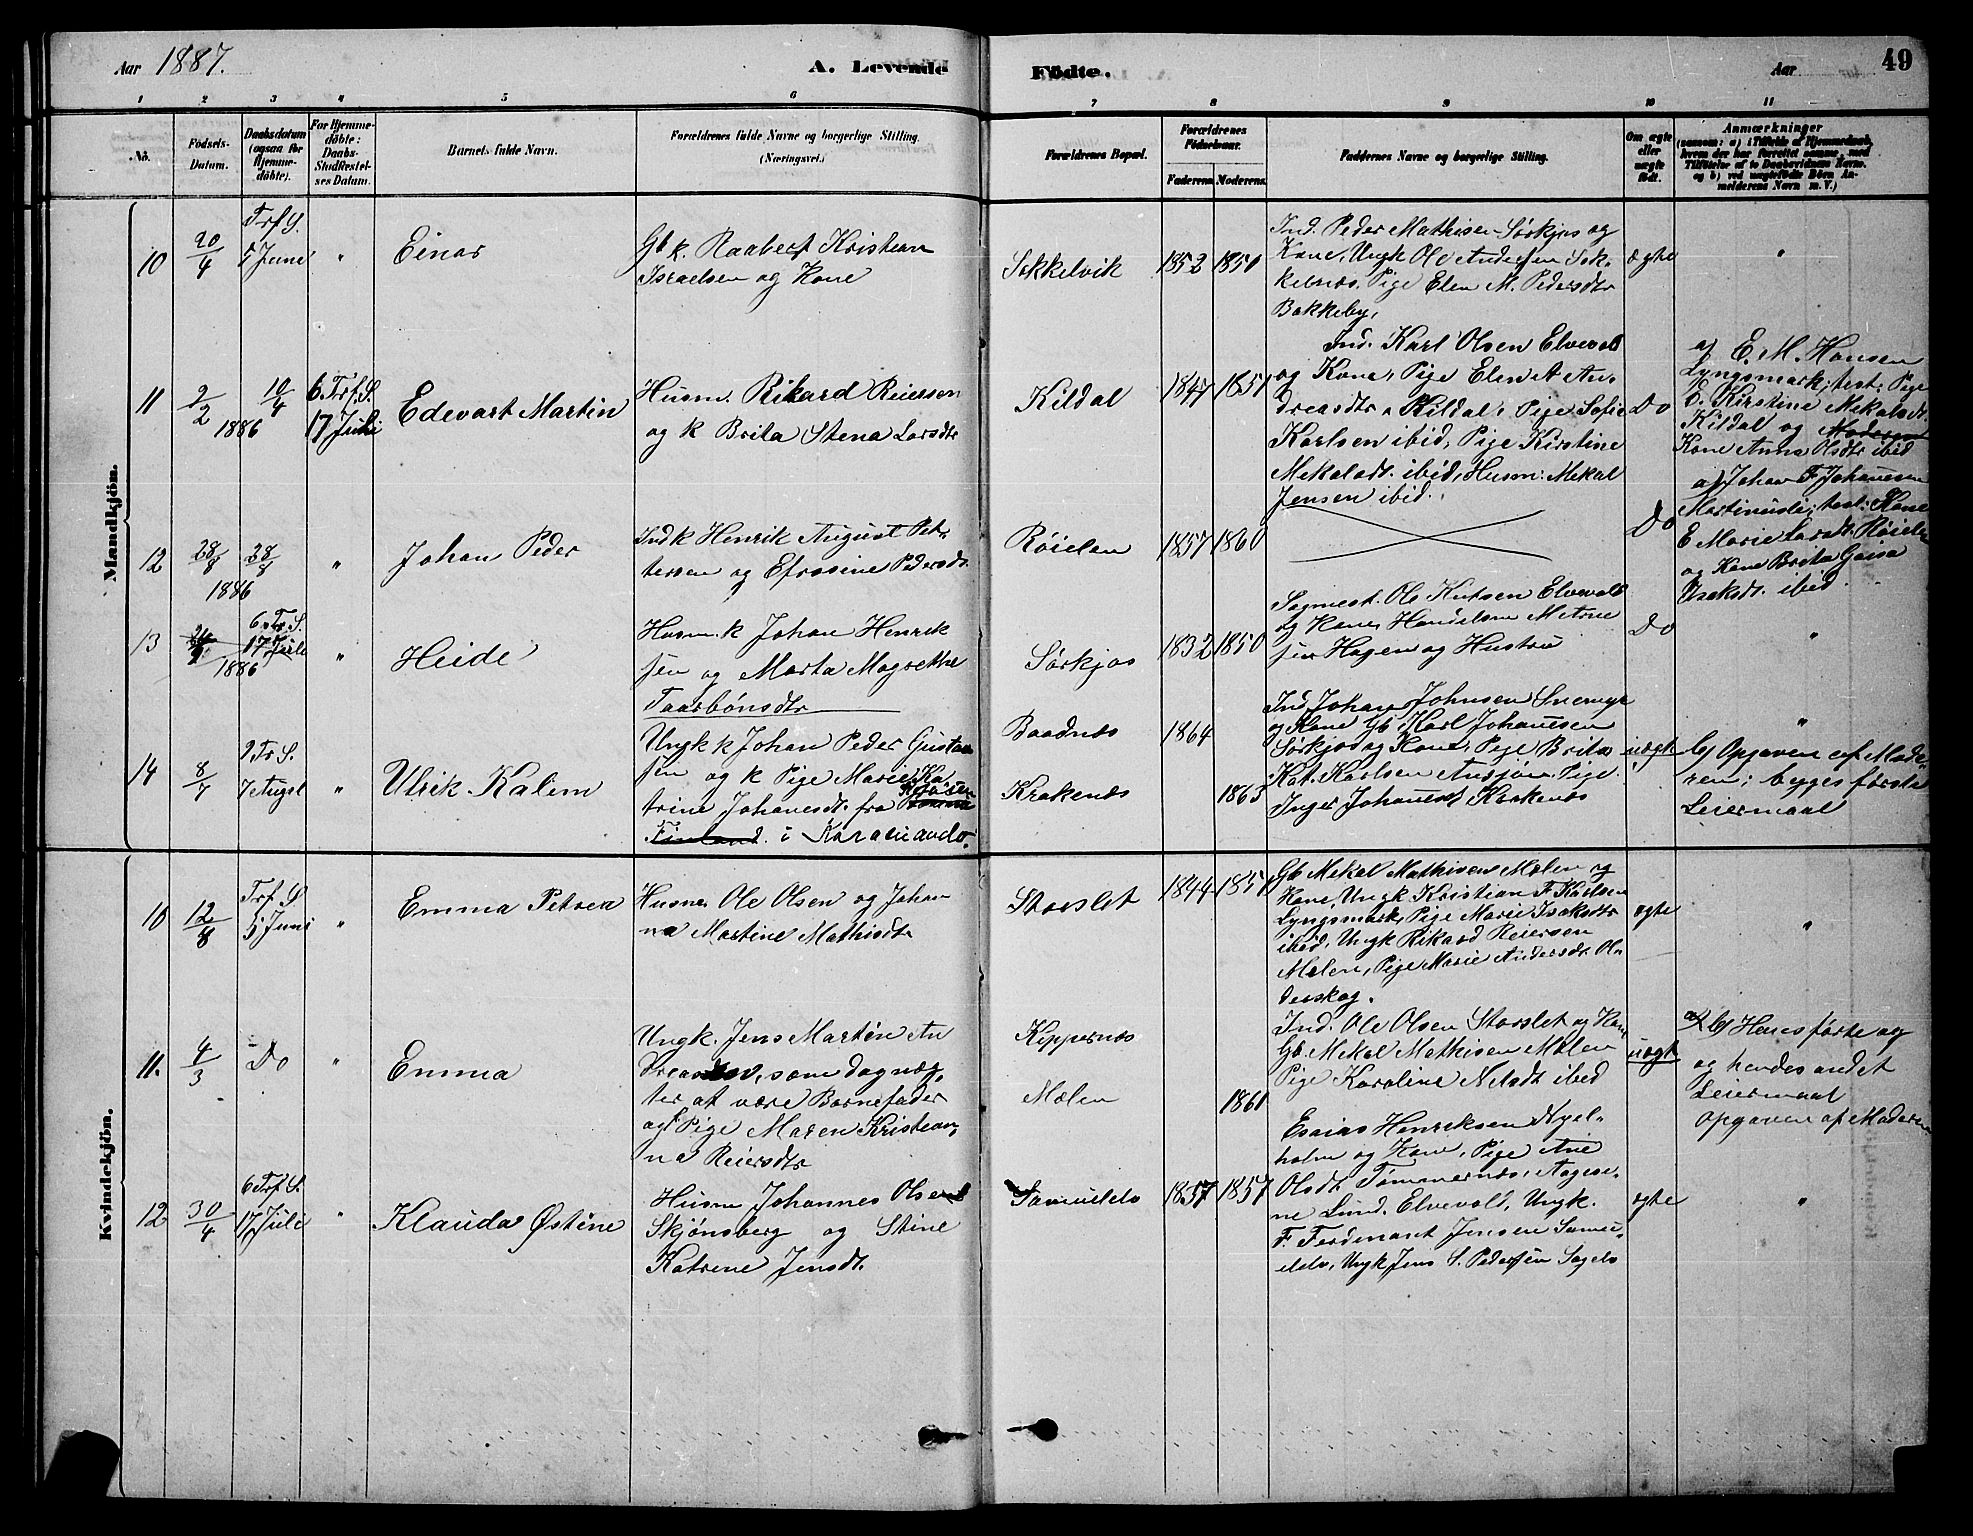 Aar 1887.
A. Levende
Födte.
Aar
49
1 2 3 4 5 6 7 8 9 10 11
No.
Födsels-
Datum.
Daabsdatum
(ogsaa for
Hjemme-
döbte).
For Hjemme-
döbte:
Daabs-
Stadfæstel-
ses Datum.
Barnets fulde Navn.
Forældrenes fulde Navne og borgerlige Stilling.
(Næringsvei.)
Forældrenes Bopæl.
Forældrenes
Födselsaar.
Faderens. Moderens.
Faddernes Navne og borgerlige Stilling.
Om ægte
eller
uægte
födt.
Anmærkninger
(saasom: a) i Tilfælde af Hjemmedaab,
hvem der har forrettet samme, med
Tilföielse af to Daabsvidners Navne,
og b) ved uægtefödte Börn An-
melderens Navn m. V.)
Mandkjön.
10
20/4
Trf. S.
5 Juni
"
Einar
Gbk. Raabert Kristian
Israelsen og Kone
Sokkelvik
1852 1850
Ind. Peder Mathisen Sørkjos og
Kone, Ungk Ole Andersen Sok-
kelnes, Pige Elen M. Pedersdtr
Bakkeby,
ægte
"
11
2/2
10/4
1886
6. Trf. S.
17 Juli
Edevart Martin
Husm. Rikard Reiersen
og k Brita Stena Larsdtr
Kildal
1847 1851
Ind. Karl Olsen Elvevold
og Kone, Pige Elen A An-
dreasdtr Kildal, Pige Sofie
Karlsen ibid, Pige Kirstine
Mekalsdt. ibid, Husm: Mekal
Jensen ibid.
Do
af E. M. Hansen
Lyngsmark; test: Pige
O. Kirstine Mekalsdt
Kildal og
Kone Anna Olsdtr ibid
12
28/8
28/8
1886
"
Johan Peder
Indk Henrik August Pet-
tersen og Efrosine Pedersdt.
Røielen
1857 1860
Do
a) Johan F Johannesen
Martinusli; test: Kone
E Marie Larsdt. Røielen
og Kone Brita Gaisa
Isaksdt. ibid
13
1886
6. Tr. S.
17 Juli
"
Heide
Husm. k Johan Henrik
sen og Marta Magrethe
Taarbönsdtr
Sørkjos
1832 1850
Sagmest. Ole Knutsen Elvevold
og Kone, Handelsm Metne
sen Hagen og Hustru
Do
"
14
8/7
9 Tr. S.
7 August
"
Ulrik Kalem
Ungk k Johan Peder Gustav
sen og k Pige Marie Ka
trine Johanesdt. fra
Finland. i Karasuando.
Baadnes
Krakenes
1864
1863
Ind Johan Johnsen Snemyr
og Kone Gb Karl Johannesen
Sørkjos og Kone, Pige Brita
Kat. Karlsen Ansjøn, Pige
Inger Johanesdt Krakenes
uægte
"
b) Opgaven af Mode-
ren; begges første
Leiermaal
Kvindekjön.
10
12/8
Trf. S.
5 Juni
"
Emma Petrea
Husm. Ole Olsen og Johan
na Martine Mathisdtr
Storslet
1844 1851
Gb Mekal Mathisen Mælen og
Kone, Ungk Kristian F Karlsen
Lyngsmark, Pige Marie Isaksdtr
ibid, Ungk Rikard Reiersen
Mælen, Pige Marie Andersdt. Ol-
derskog.
ægte
"
11.
4/3
Do
"
Emma
Ungk. Jens Martin An
dreas, som dog næg-
ter at være Barnefader
og Pige Maren Kristian-
na Reiersdtr
Kippernes
Mælen
1861
Ind. Ole Olsen Storslet og Kone
Gb. Mekal Mathisen Mælen
Pige Karoline Nelsdt ibid
uægte
b) Hans første og
og hendes andet
Leiermaal
Opgaven af Moderen
12
30/4
6 Trf. S.
17 Juli
"
Klauda Østine
Husm Johannes Olsen
Skjönsberg og Stine
Katrine Jensdt.
Samuelelv
1857 1857
Esaias Henriksen Nyel-
holm og Kone, Pige Ane
Olsdt Tömmernes, Aagesi-
ne Lund, Elvevold, Ungk.
F. Ferdinant Jensen Samu-
elelv, Ungk Jens S. Pedersen Sagelv
ægte
"